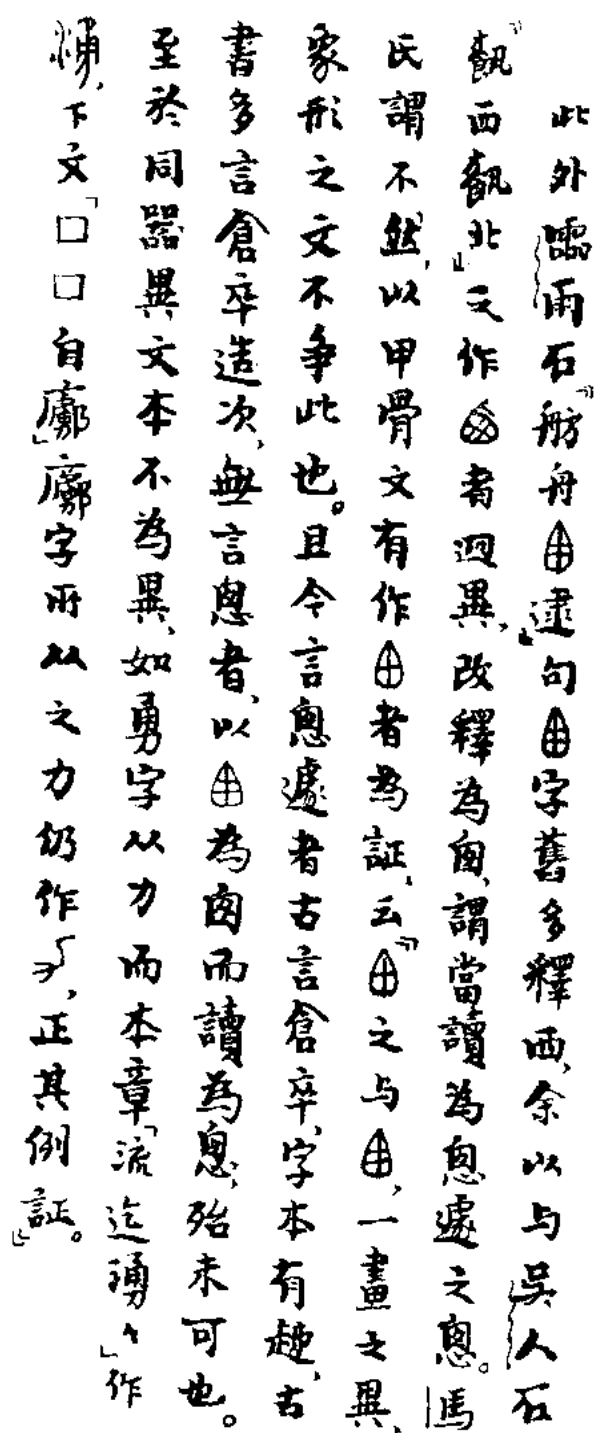 此外霝雨石「舫舟逮」句字舊多釋西，余以与吳人石
「西北」文作者迥異，改釋為囱，謂當讀為悤遽之悤。馬
氏謂不然，以甲骨文有作者為証，云「之与，一畫之異，
象形之文不爭此也。且今言悤遽者古言倉卒，字本有趣，古
書多言倉卒造次，無言悤者，以為囱而讀為悤，殆未可也。
至於同器異文本不為異，如勇字从力而本章「流迄湧々」作
，下文「□□自」字所从之力仍作，正其例証。」